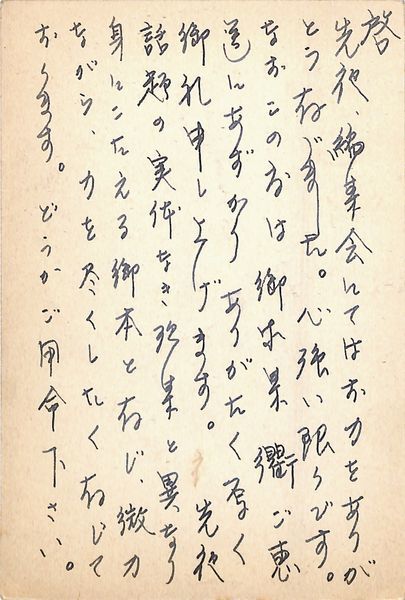 啓
先夜、編集会にてはお力をありが
とう存じました。心強い限りです。
なおこの度は 御本 衢 ご恵
送にあずかり ありがたく厚く
御礼申し上げます。 先夜
話題の実体なき 集と異なり
身にこたえる御本と存じ、微力
ながら、力を尽くしたく存じて
おります。どうかご用命下さい。